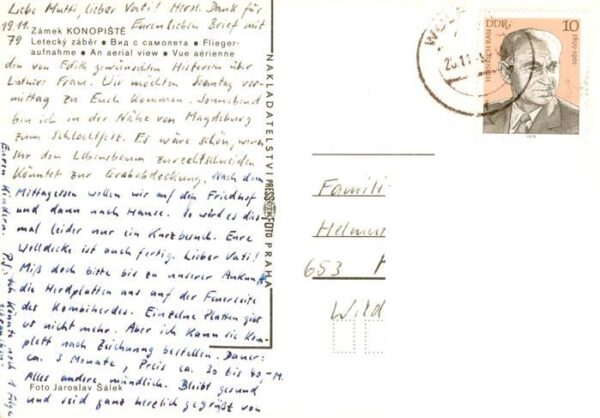 Liebe Mutti, lieber Vati! Herzl. Dank für
19.11. Euren lieben Brief mit
79
Zámek KONOPIŠTĚ
Letecký záběr • Вид с самолета • Flieger-
aufnahme • An aerial view • Vue aérienne
den von Edith gewünschten Historien über
Luthers Frau. Wir möchten Sonntag vor-
mittag zu Euch kommen. Sonnabend
bin ich in der Nähe von Magdeburg
zum Schlachtfest. Es wäre schön, wenn
Ihr den Lebensbaum zurechtschneiden
könntet zur Grababdeckung. Nach dem
Mittagessen wollen wir auf den Friedhof
und dann nach Hause. So wird es dies-
mal leider nur ein Kurzbesuch. Eure
Wolldecke ist auch fertig. Lieber Vati!
Miß doch bitte bis zu unserer Ankunft
die Herdplatten aus auf der Feuerseite
des Kombiherdes. Einzelne Platten gibt
es nicht mehr. Aber ich kann sie kom-
plett nach Zeichnung bestellen. Dauer:
ca. 3 Monate, Preis ca. 30 bis 40,-M.
Alles andere mündlich. Bleibt gesund
und seid ganz herzlich gegrüßt von
Euren Kindern.
Foto Jaroslav Šálek
NAKLADATELSTVÍ PRESSFOTO PRAHA
DDR 10
HEINRICH RAU
1899-1961
1979
Famili
Helmu
653
Wild